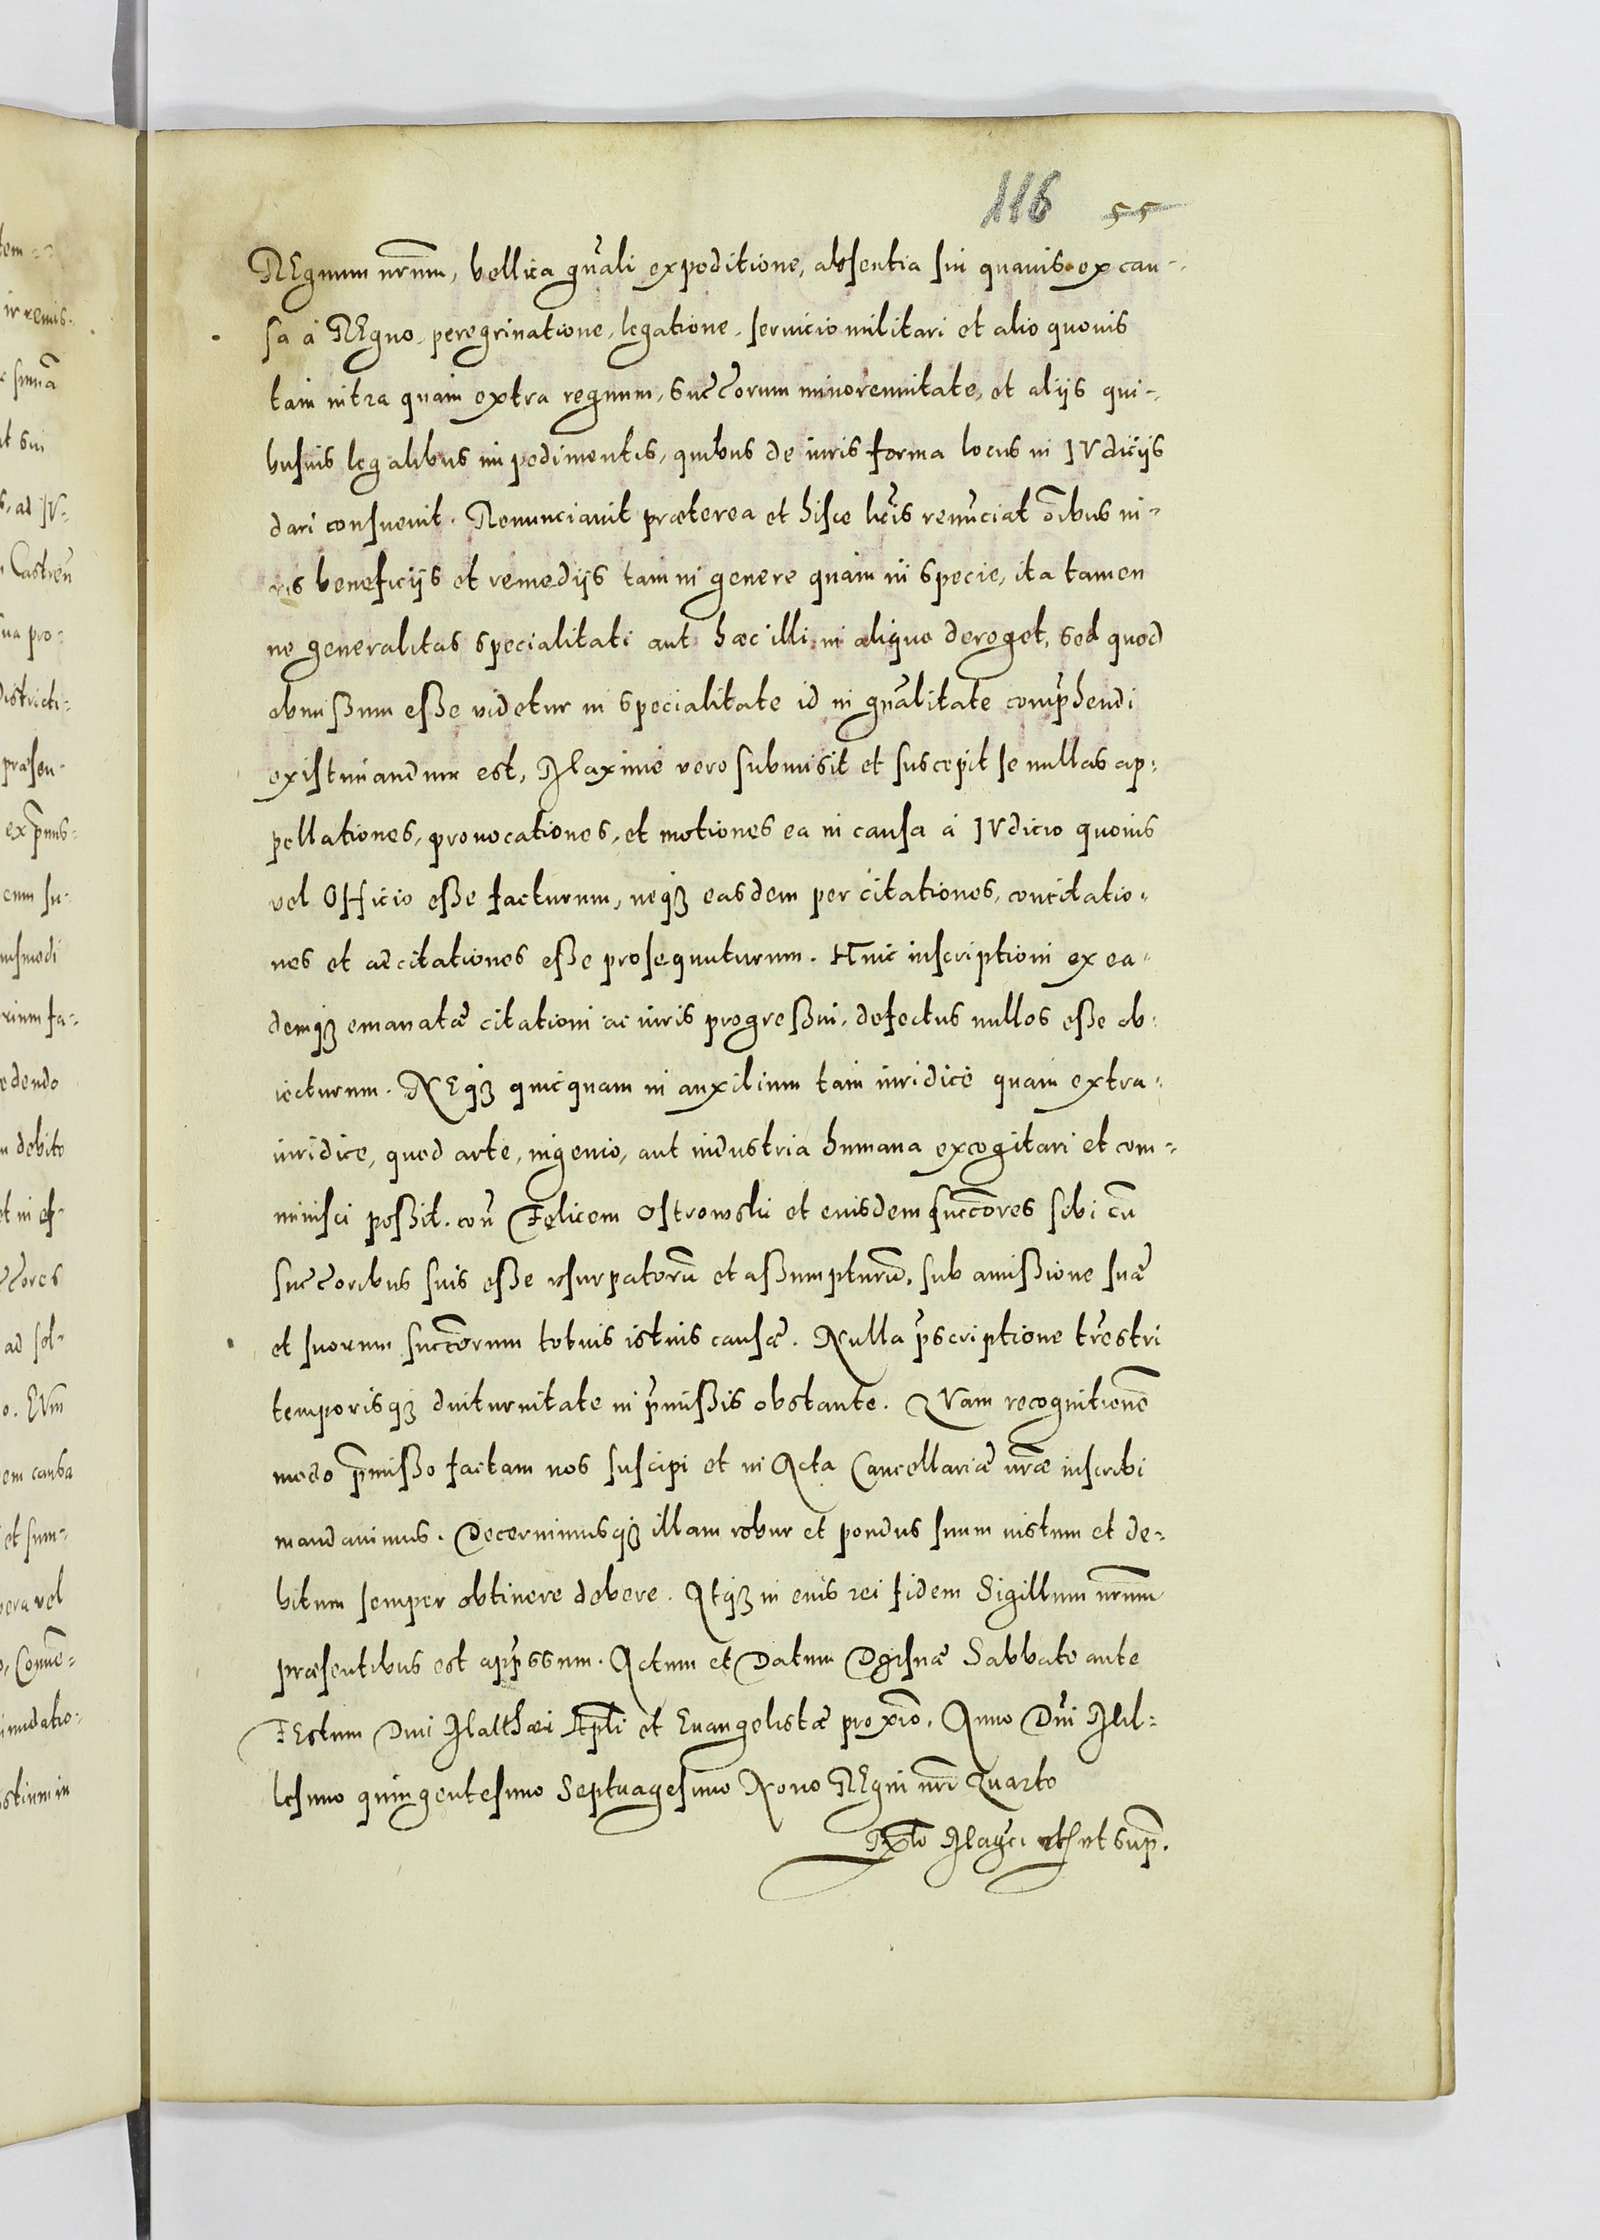 116 55
REgnum nr̄um, bellica gn̄ali expeditione, absentia sui quauis ex cau-
sa à REgno, peregrinatione, legatione, seruicio militari et alio quouis
tam intra quam extra regnum, succ̄orum minorennitate, et alijs qui-
busuis legalibus impedimentis, quibus de iuris forma locus in IVdicijs
dari consueuit. Renunciauit præterea et hisce lr̄is renūciat oībus iu-
ris beneficijs et remedijs tam in genere quam in specie, ita tamen
ne generalitas specialitati aut hæc illi in aliquo deroget, sed quod
obmißum eße videtur in specialitate id in gn̄alitate comp̄hendi
existimandum est, Maxime vero submisit et suscepit se nullas ap-
pellationes, prouocationes, et motiones ea in causa à IVdicio quouis
vel Officio eße facturum, neqz easdem per citationes, concitatio-
nes et adcitationes eße prosequuturum. Huic inscriptioni ex ea-
demqz emanatæ citationi ac iuris progreßui, defectus nullos eße ob-
iecturum. NEqz quicquam in auxilium tam iuridicè quam extra-
iuridice, quod arte, ingenio, aut industria humana excogitari et com-
minisci poßit. con̄ Felicem Ostrowski et eiusdem succ̄ores sibi cū
succ̄oribus suis eße vsurpatorū et aßumpturū, sub amißione suæ
et suorum succ̄orum totius istius causæ. Nulla p̄scriptione tr̄estri
temporisqz diuturnitate in p̄mißis obstante. QVam recognitionē
modo p̄mißo factam nos suscipi et in Acta Cancellariæ nr̄æ inscribi
mandauimus. Decernimusqz illam robur et pondus suum iustum et de-
bitum semper obtinere debere. Atqz in eius rei fidem Sigillum nr̄um
præsentibus est app̄ssum. Actum et Datum Dgisnæ Sabbato ante
FEstum Diui Matthæi Ap̄li et Euangelistæ proxīo. Anno Dn̄i Mil-
lesimo quingentesimo Septuagesimo Nono REgni nr̄i Quarto
vt sup̄.